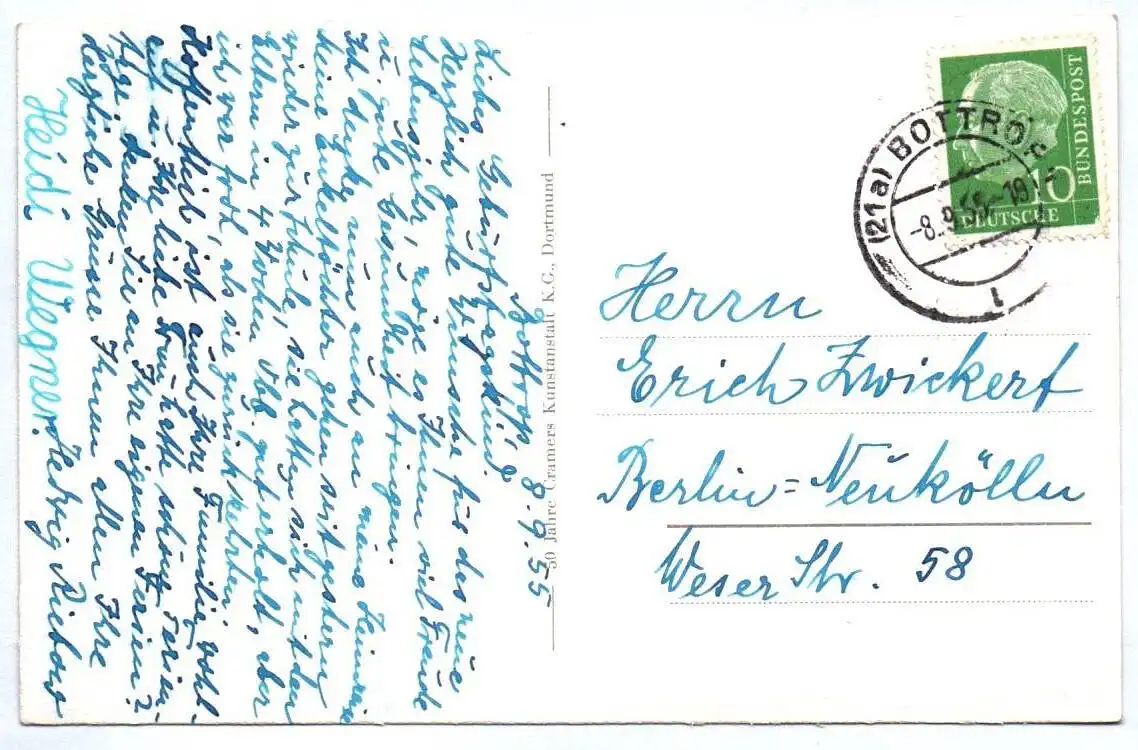 Bottrop, 8.9.55
Liebes Geburtstagskind!
Herzlich gute Wünsche für das neue
Lebensjahr, möge es Ihnen viel Freude
u. gute Gesundheit bringen.
Ich denke nun auch an meine Heimreise
meine Enkeltöchter gehen seit gestern
wieder zur Schule, sie hatten sich mit den
Eltern in 4 Wochen gut erholt, aber
ich war froh, als sie zurückkehrten.
Hoffentlich ist auch Ihre Familie wohl-
auf u. Ihre liebe Frau hatte schöne Ferien-
tage, denken Sie an Ihre eigenen Ferien?
Herzliche Grüsse Ihnen allen Ihre
Hedwig
Heidi Wegner.
50 Jahre Cramers Kunstanstalt K.G., Dortmund
DEUTSCHE
BUNDESPOST
10
(21a) BOTTROP
-8.9.55-18
1
Herrn
Erich Zwickert
Berlin=Neukölln
Weser Str. 58